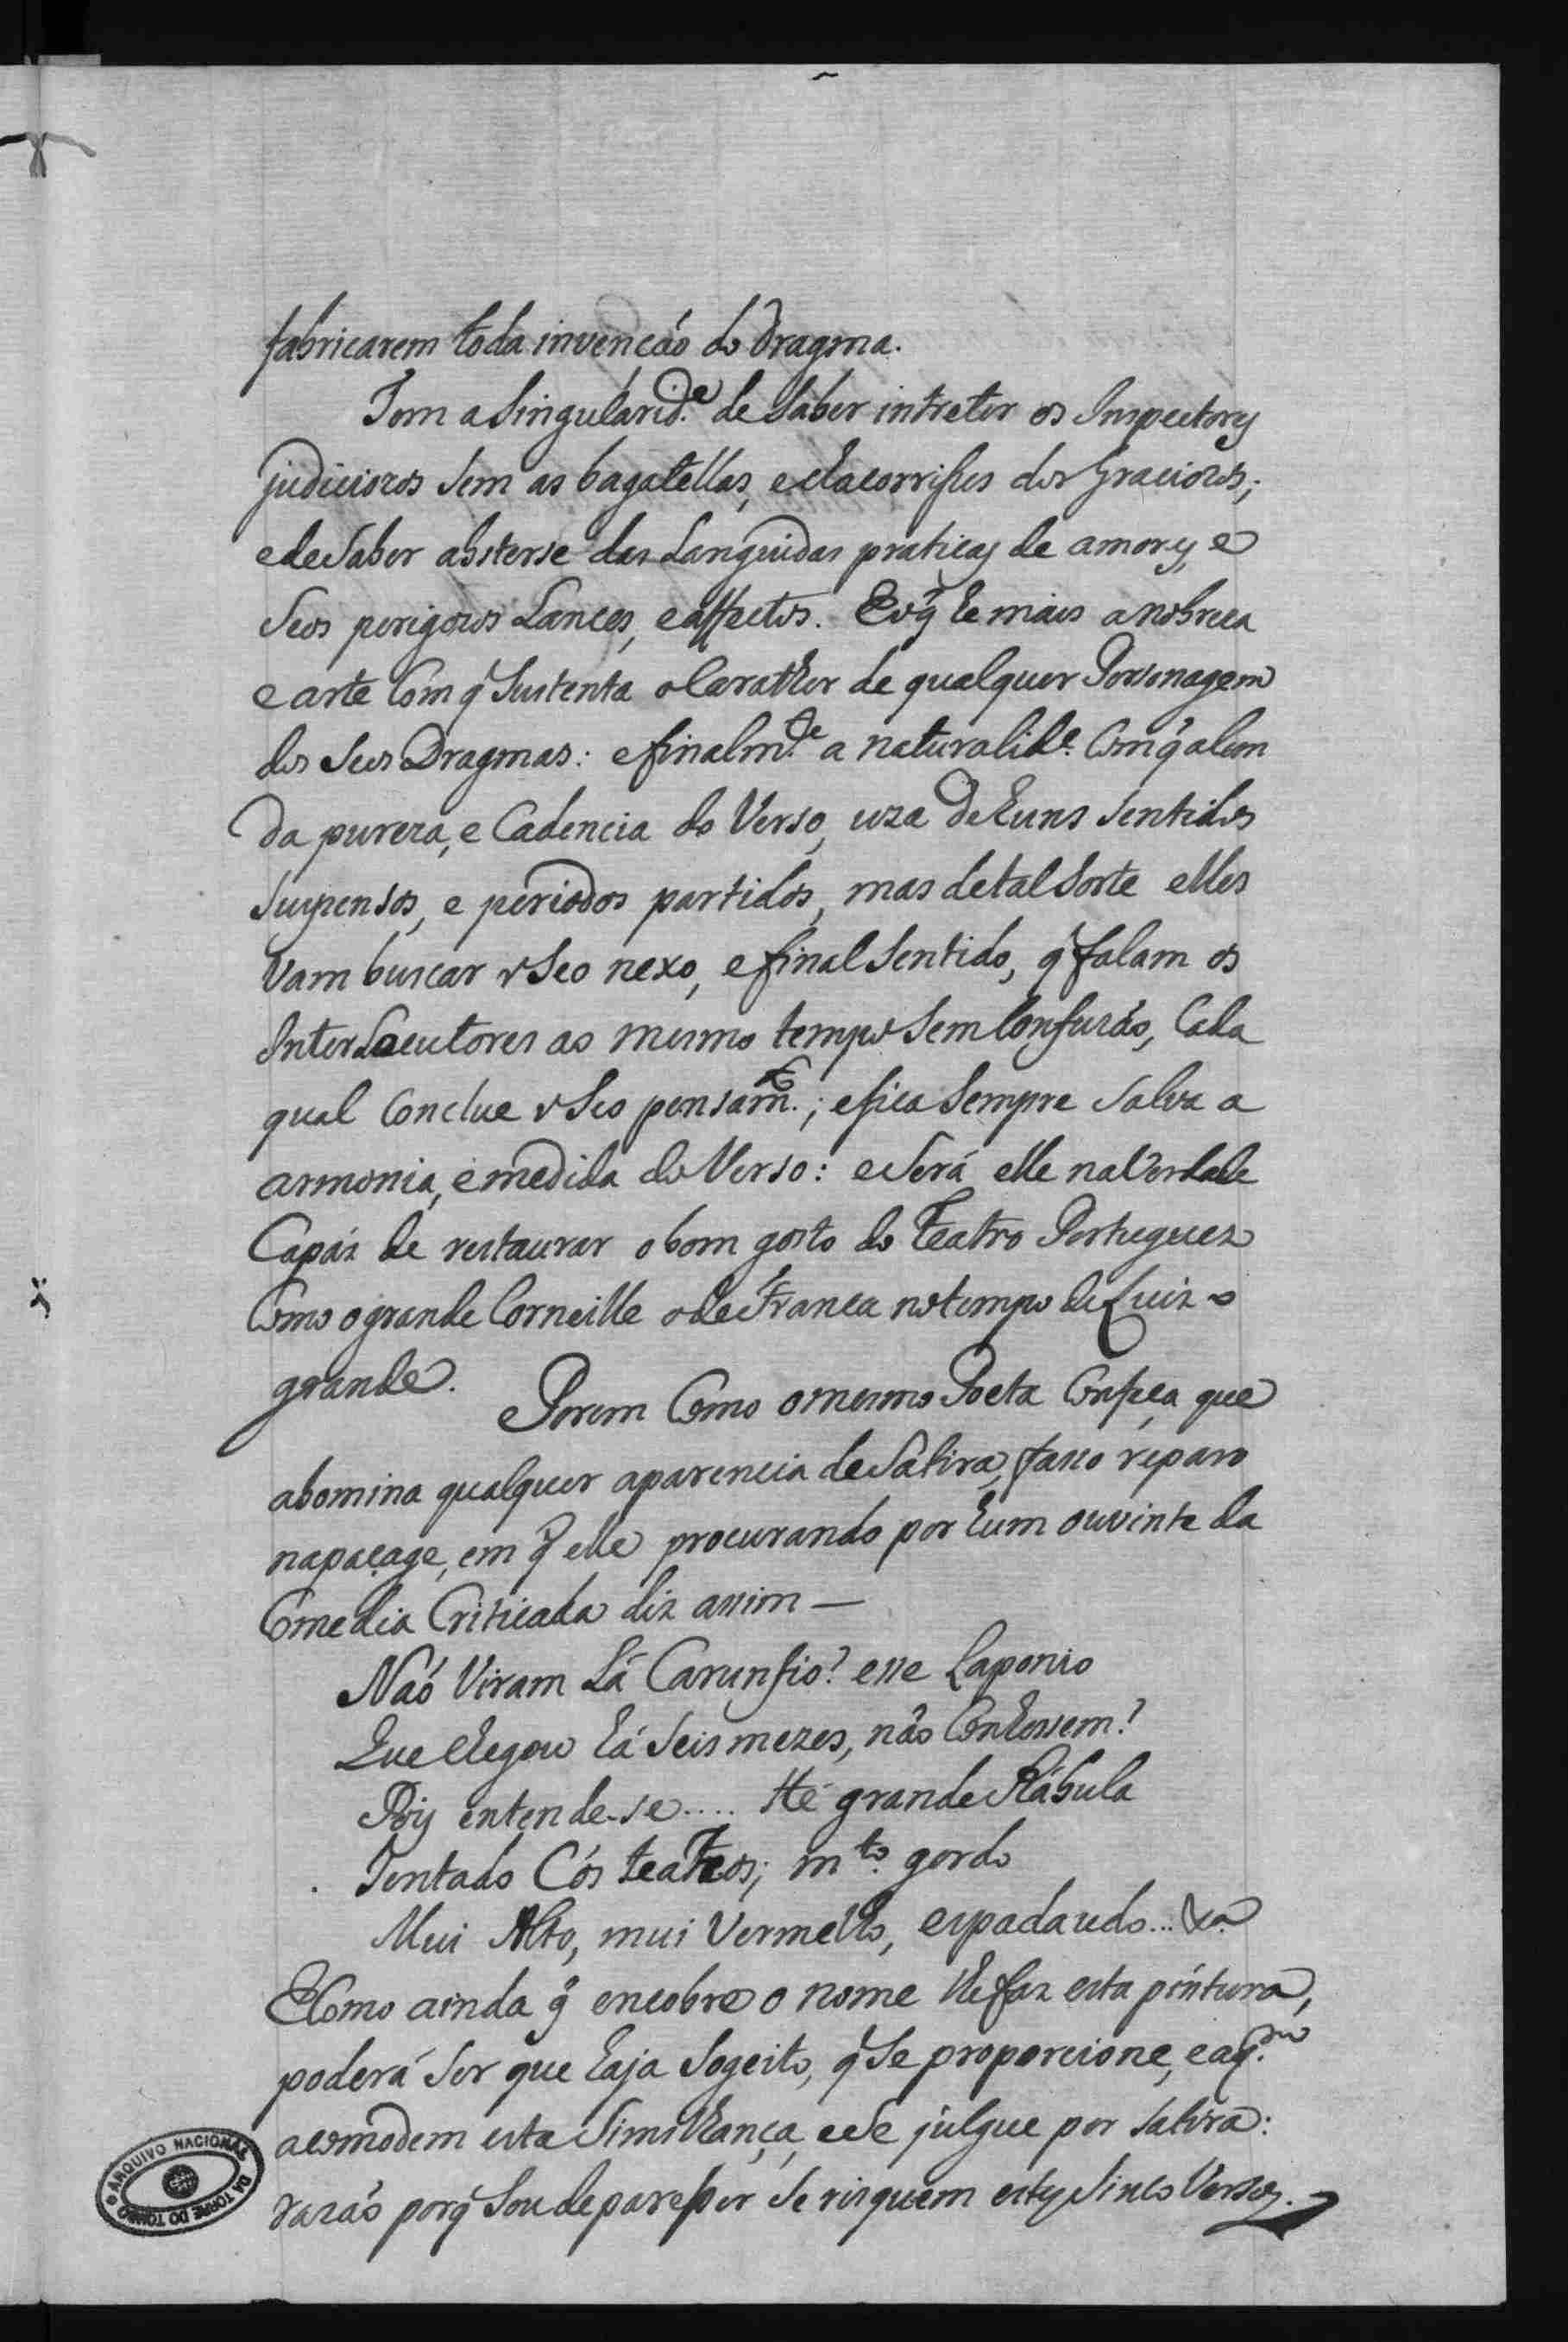 fabricarem toda invencáo do Dragma.
Tem a Singularid.e de Saber intreter os Inspectores
judiciozos sem as bagatellas, e chacorrises dos Graciozos;
e de Saber absterse das Languidas praticas de amores, e
Seos perigozos Lances, e affectos. E o q̃ he mais a nobreca
e arte Com q̃ Sustenta o Carather de qualquer Personagem
dos Seos Dragmas: e finalm.te a naturalid.e Com q̃ alem
da pureza, e Cadencia do Verso, uza de huns Sentidos
Suspensos, e periodos partidos, mas de tal Sorte elles
Vam buscar o Seo nexo, e final Sentido, q̃ falam os
InterLocutores ao mesmo tempo Sem Confuzáo, Cada
qual Conclue o Seo pensam.to; e fica Sempre Salva a
armonia, e medida do Verso: e Será elle na Verdade
Capáz de restaurar o bom gosto do Teatro Portuguez
Como o grande Corneille o de Franca no tempo de Luiz o
grande.
Porem Como o mesmo Poeta Confeça que
abomina qualquer aparencia de Satira, fasso reparo
na paçage, em q̃ elle procurando por hum ouvinte da
Comedia Criticada diz assim —
Naó Viram Lá Carunfio? esse Laponio
Que chegou há Seis mezes, náo Conhessem?
Pois entende-se.... Hé grande Rábula
Tentado Cós teatros; m.to gordo
Mui Alto, mui Vermelho, espadaudo... &a
E Como ainda q̃ encobre o nome lhe faz esta pintura,
poderá Ser que haja Sogeito, q̃ Se proporcione, e a q.m
acomodem esta Similhança, e Se julgue por Satira:
razáo porq̃ Sou de paresser Se risquem estes Sinco Versos.
ARQUIVO NACIONAL DA TORRE DO TOMBO